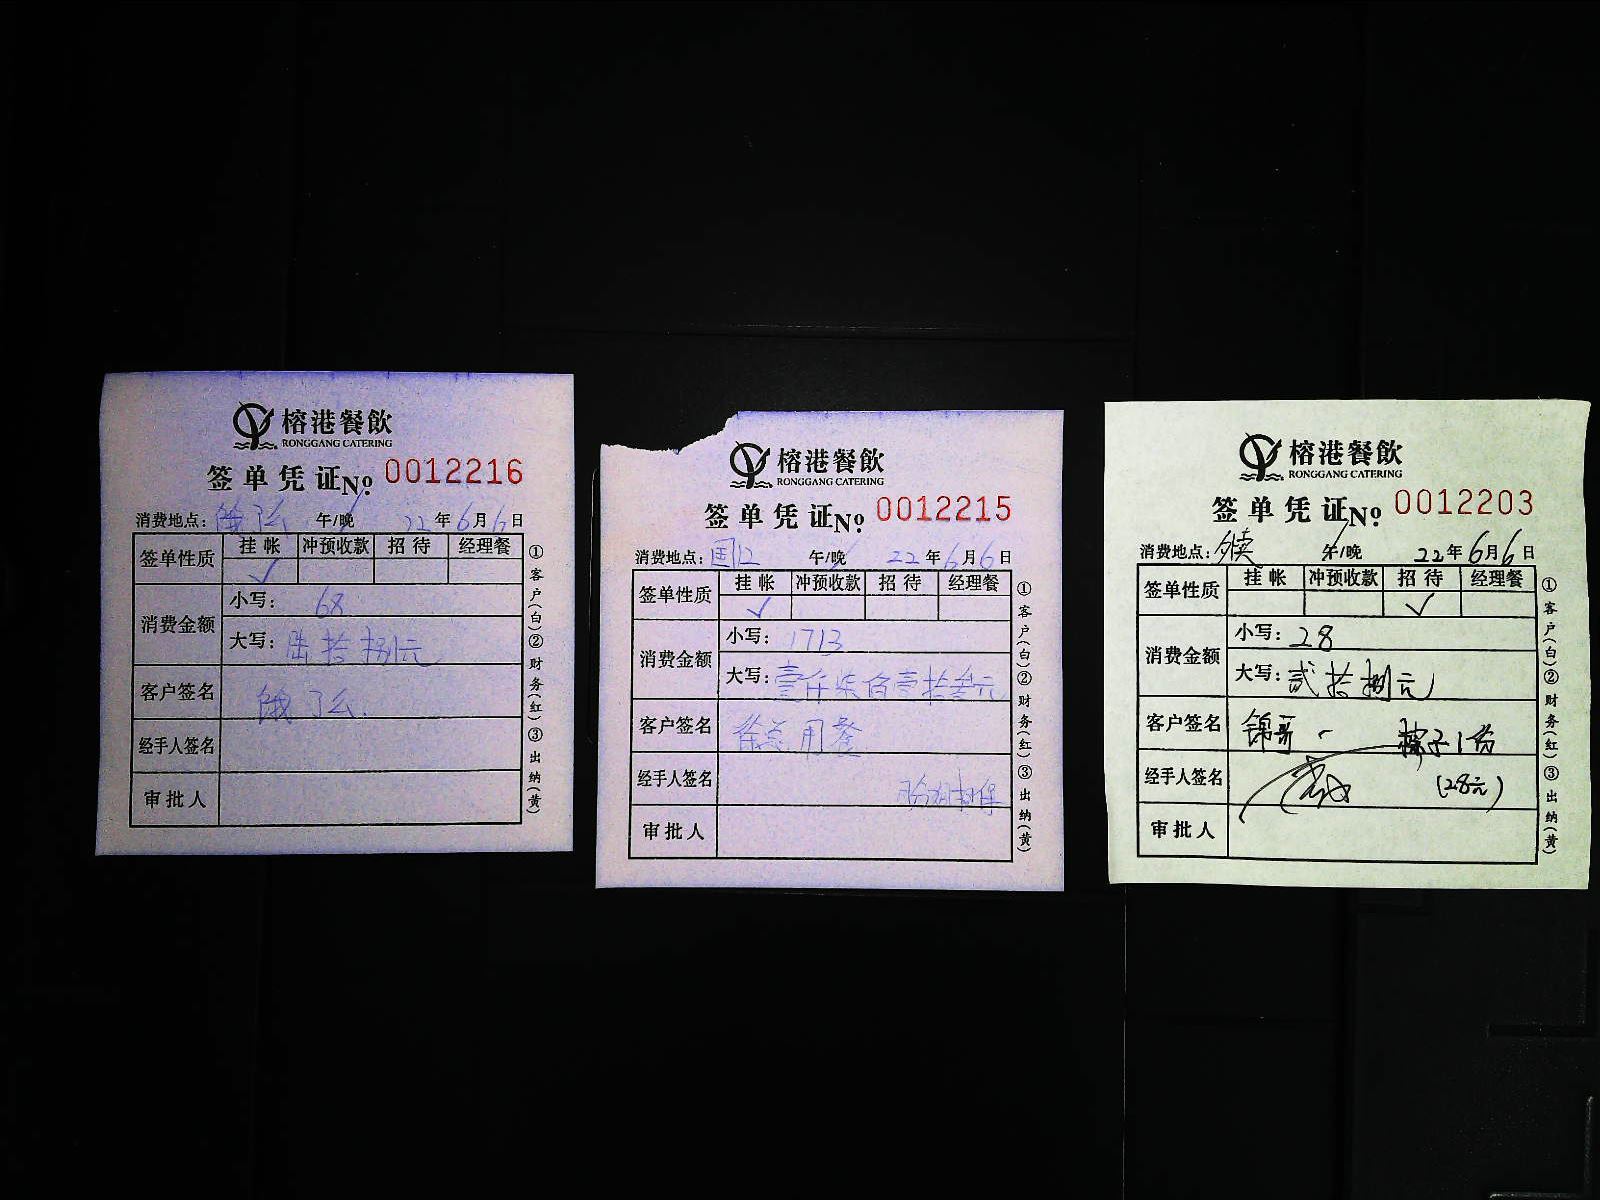 榕港餐飲
RONGGANG CATERING
签单凭证№ 0012216
消费地点：饿了么 午/晚 22年6月6日
签单性质 挂帐 冲预收款 招待 经理餐
✓
消费金额 小写：68
大写：陆拾捌元
客户签名 饿了么.
经手人签名
审批人
①客户(白)②财务(红)③出纳(黄)
榕港餐飲
RONGGANG CATERING
签单凭证№ 0012215
消费地点：国12 午/晚 22年6月6日
签单性质 挂帐 冲预收款 招待 经理餐
✓
消费金额 小写：1713
大写：壹仟柒佰壹拾叁元
客户签名 徐总用餐
经手人签名
审批人
①客户(白)②财务(红)③出纳(黄)
榕港餐飲
RONGGANG CATERING
签单凭证№ 0012203
消费地点：外卖 午/晚 22年6月6日
签单性质 挂帐 冲预收款 招待 经理餐
✓
消费金额 小写：28
大写：贰拾捌元
客户签名 锦哥 粽子1份
经手人签名 (28元)
审批人
①客户(白)②财务(红)③出纳(黄)